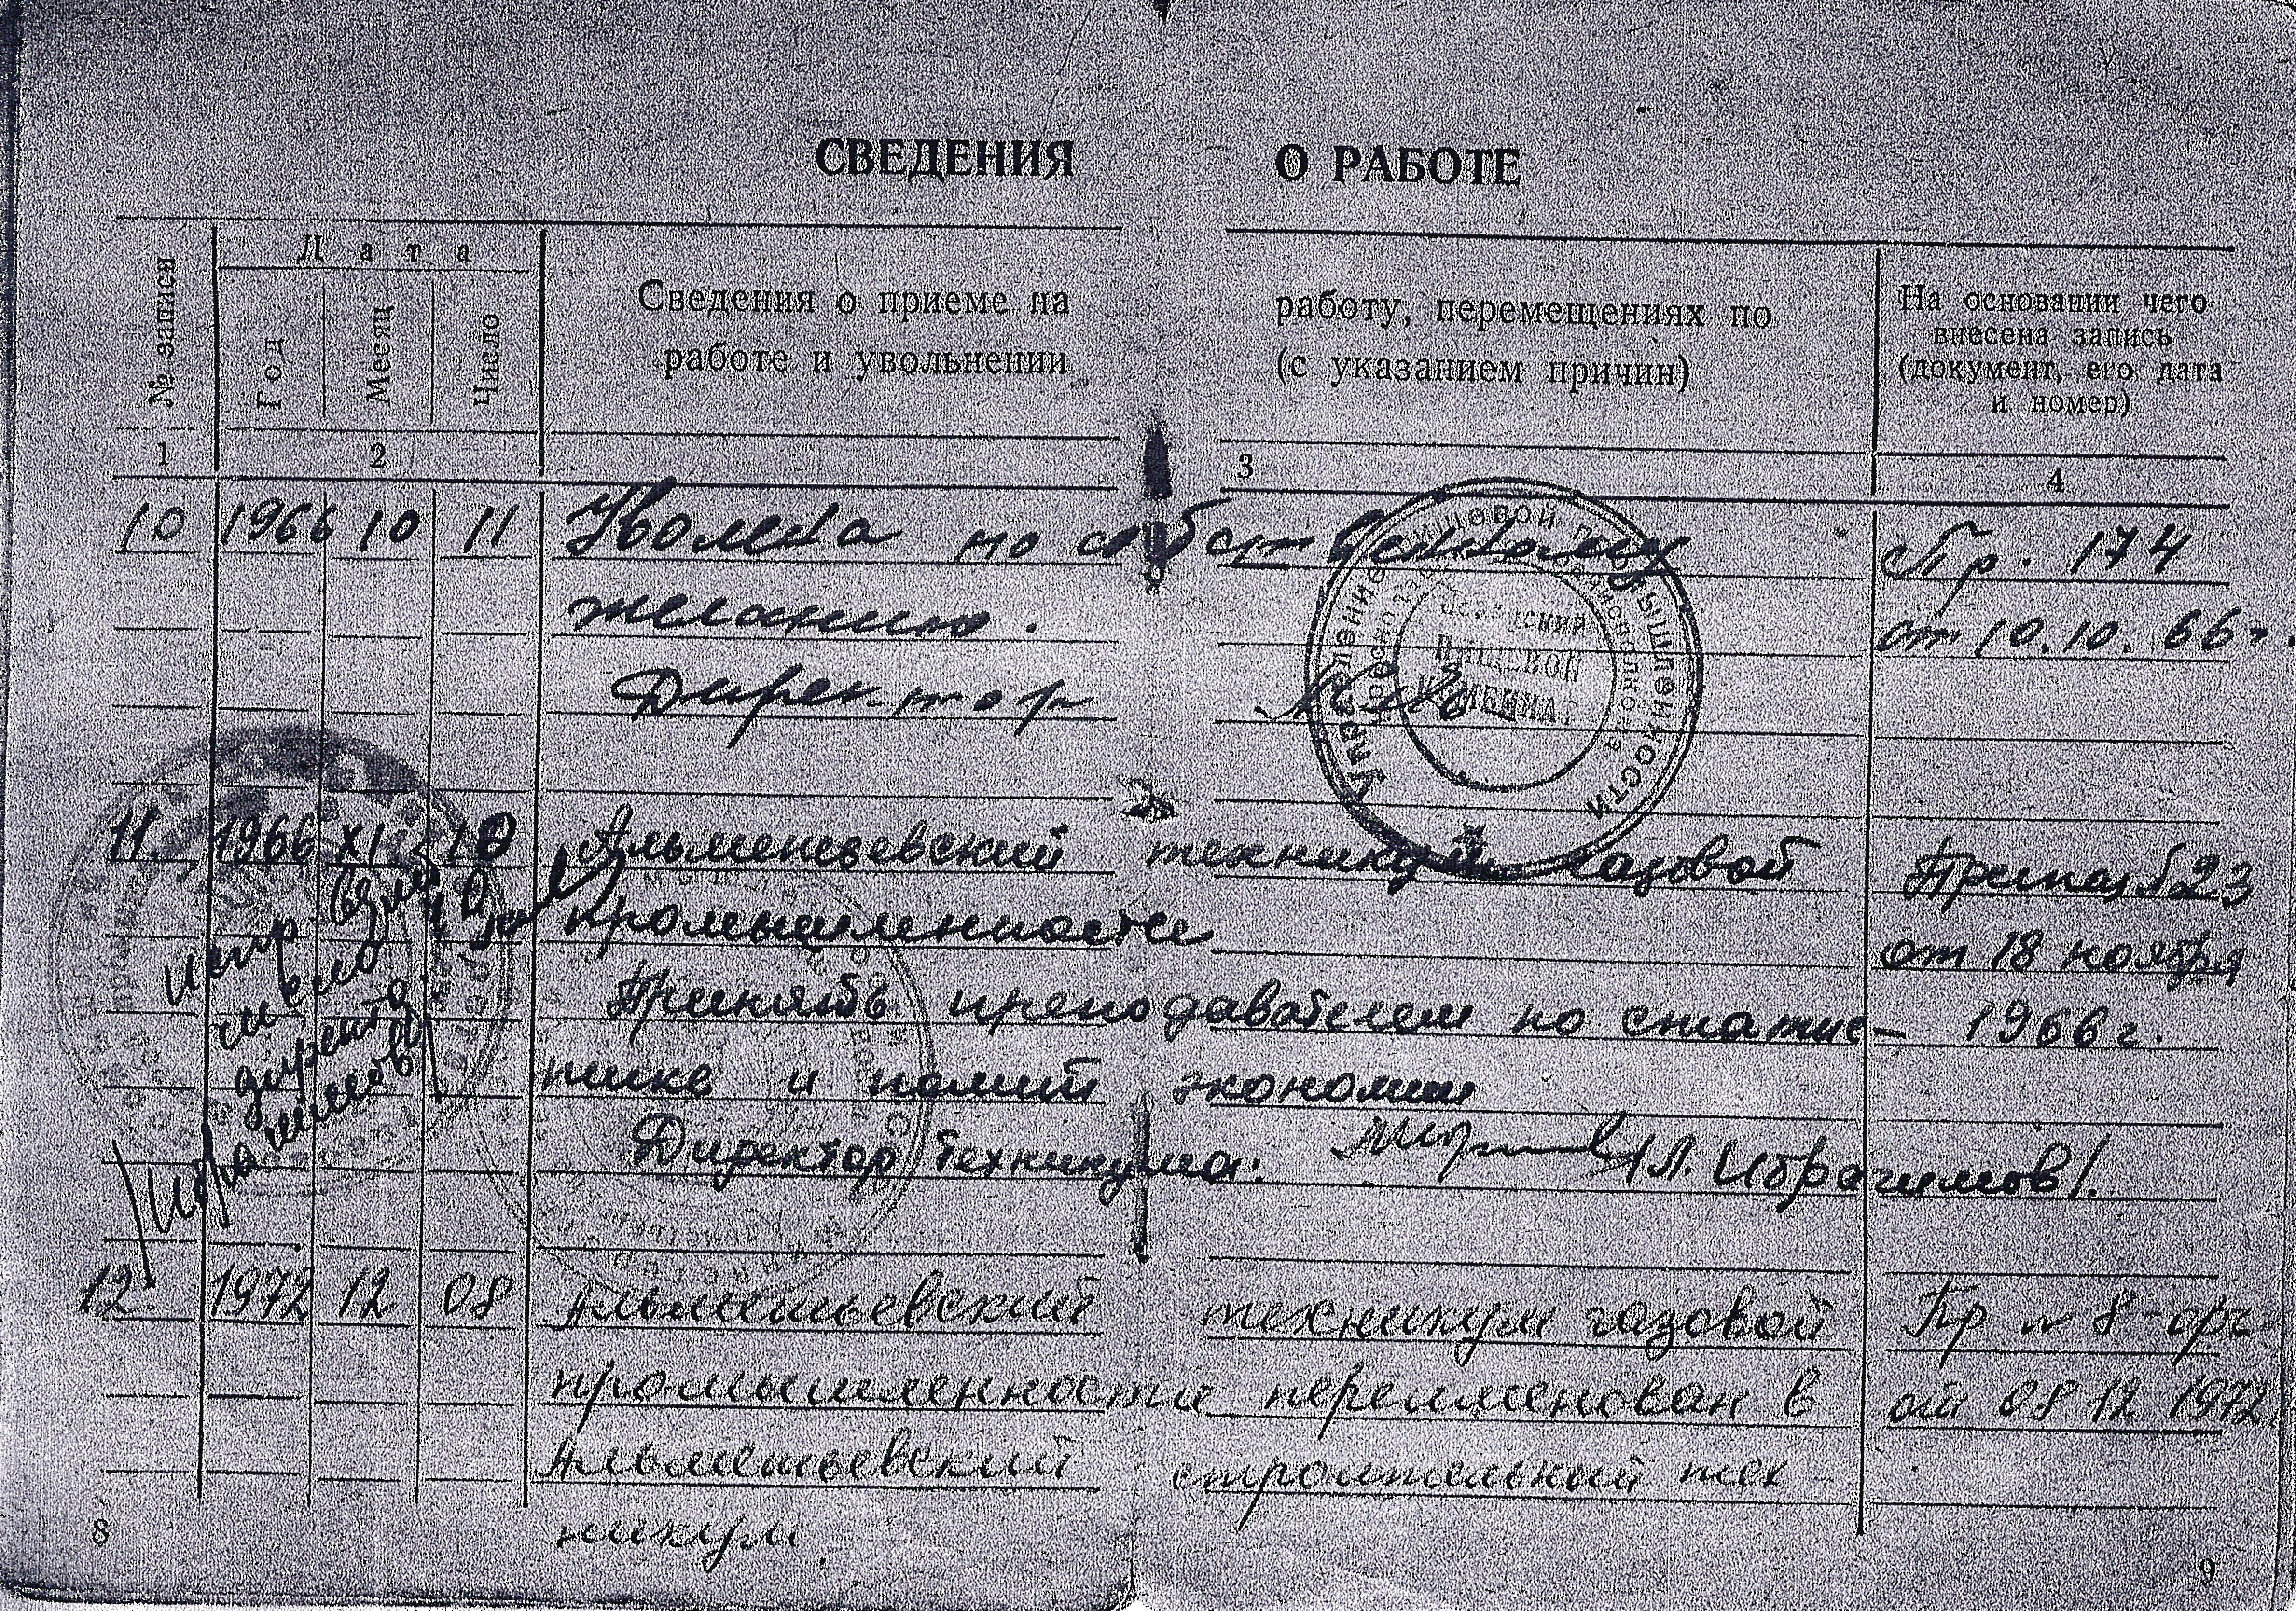 СВЕДЕНИЯ О РАБОТЕ
№ записи
Дата
Год
Месяц
Число
Сведения о приеме на работу, перемещениях по
работе и увольнении (с указанием причин)
На основании чего
внесена запись
(документ, его дата
и номер)
1 2 3 4
10 1966 10 11 Уволена по собственному Пр. 174
желанию. от 10.10.66г.
Директор
Управление пищевой промышленности
пищевой
комбинат
11. 1966 XI 10 Альметьевский техникум газовой Приказ 23
промышленности от 18 ноября
Принять преподавателем по статис- 1966г.
тике и полит экономии
Директор техникума: /Л. Ибрагимов/.
директ
/Ибрагимов
12. 1972 12 08 Альметьевский техникум газовой Пр № 8-орг
промышленности переименован в от 08 12 1972
Альметьевский строительный тех-
никум.
8 9